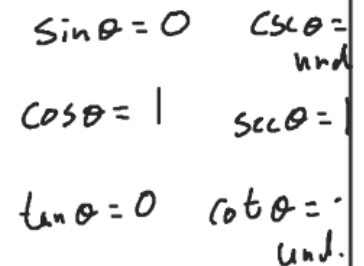 sin θ = 0 csc θ =
und
cos θ = 1 sec θ = 1
tan θ = 0 cot θ =
und.